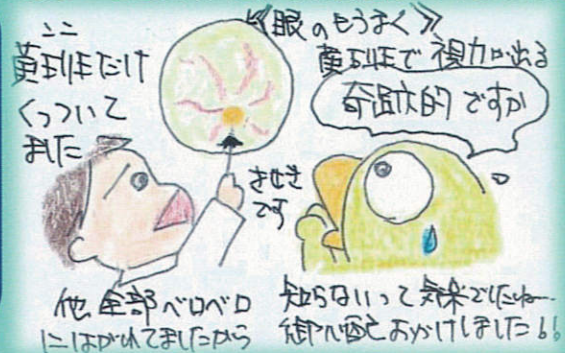 ココ
黄斑だけ
くっついて
ました
《眼のもうまく》
黄斑で視力が出る
奇蹟的ですか
きせき
です
他全部ベロベロ
にはがれてましたから
知らないって気楽でしたねー
御心配おかけしました!!